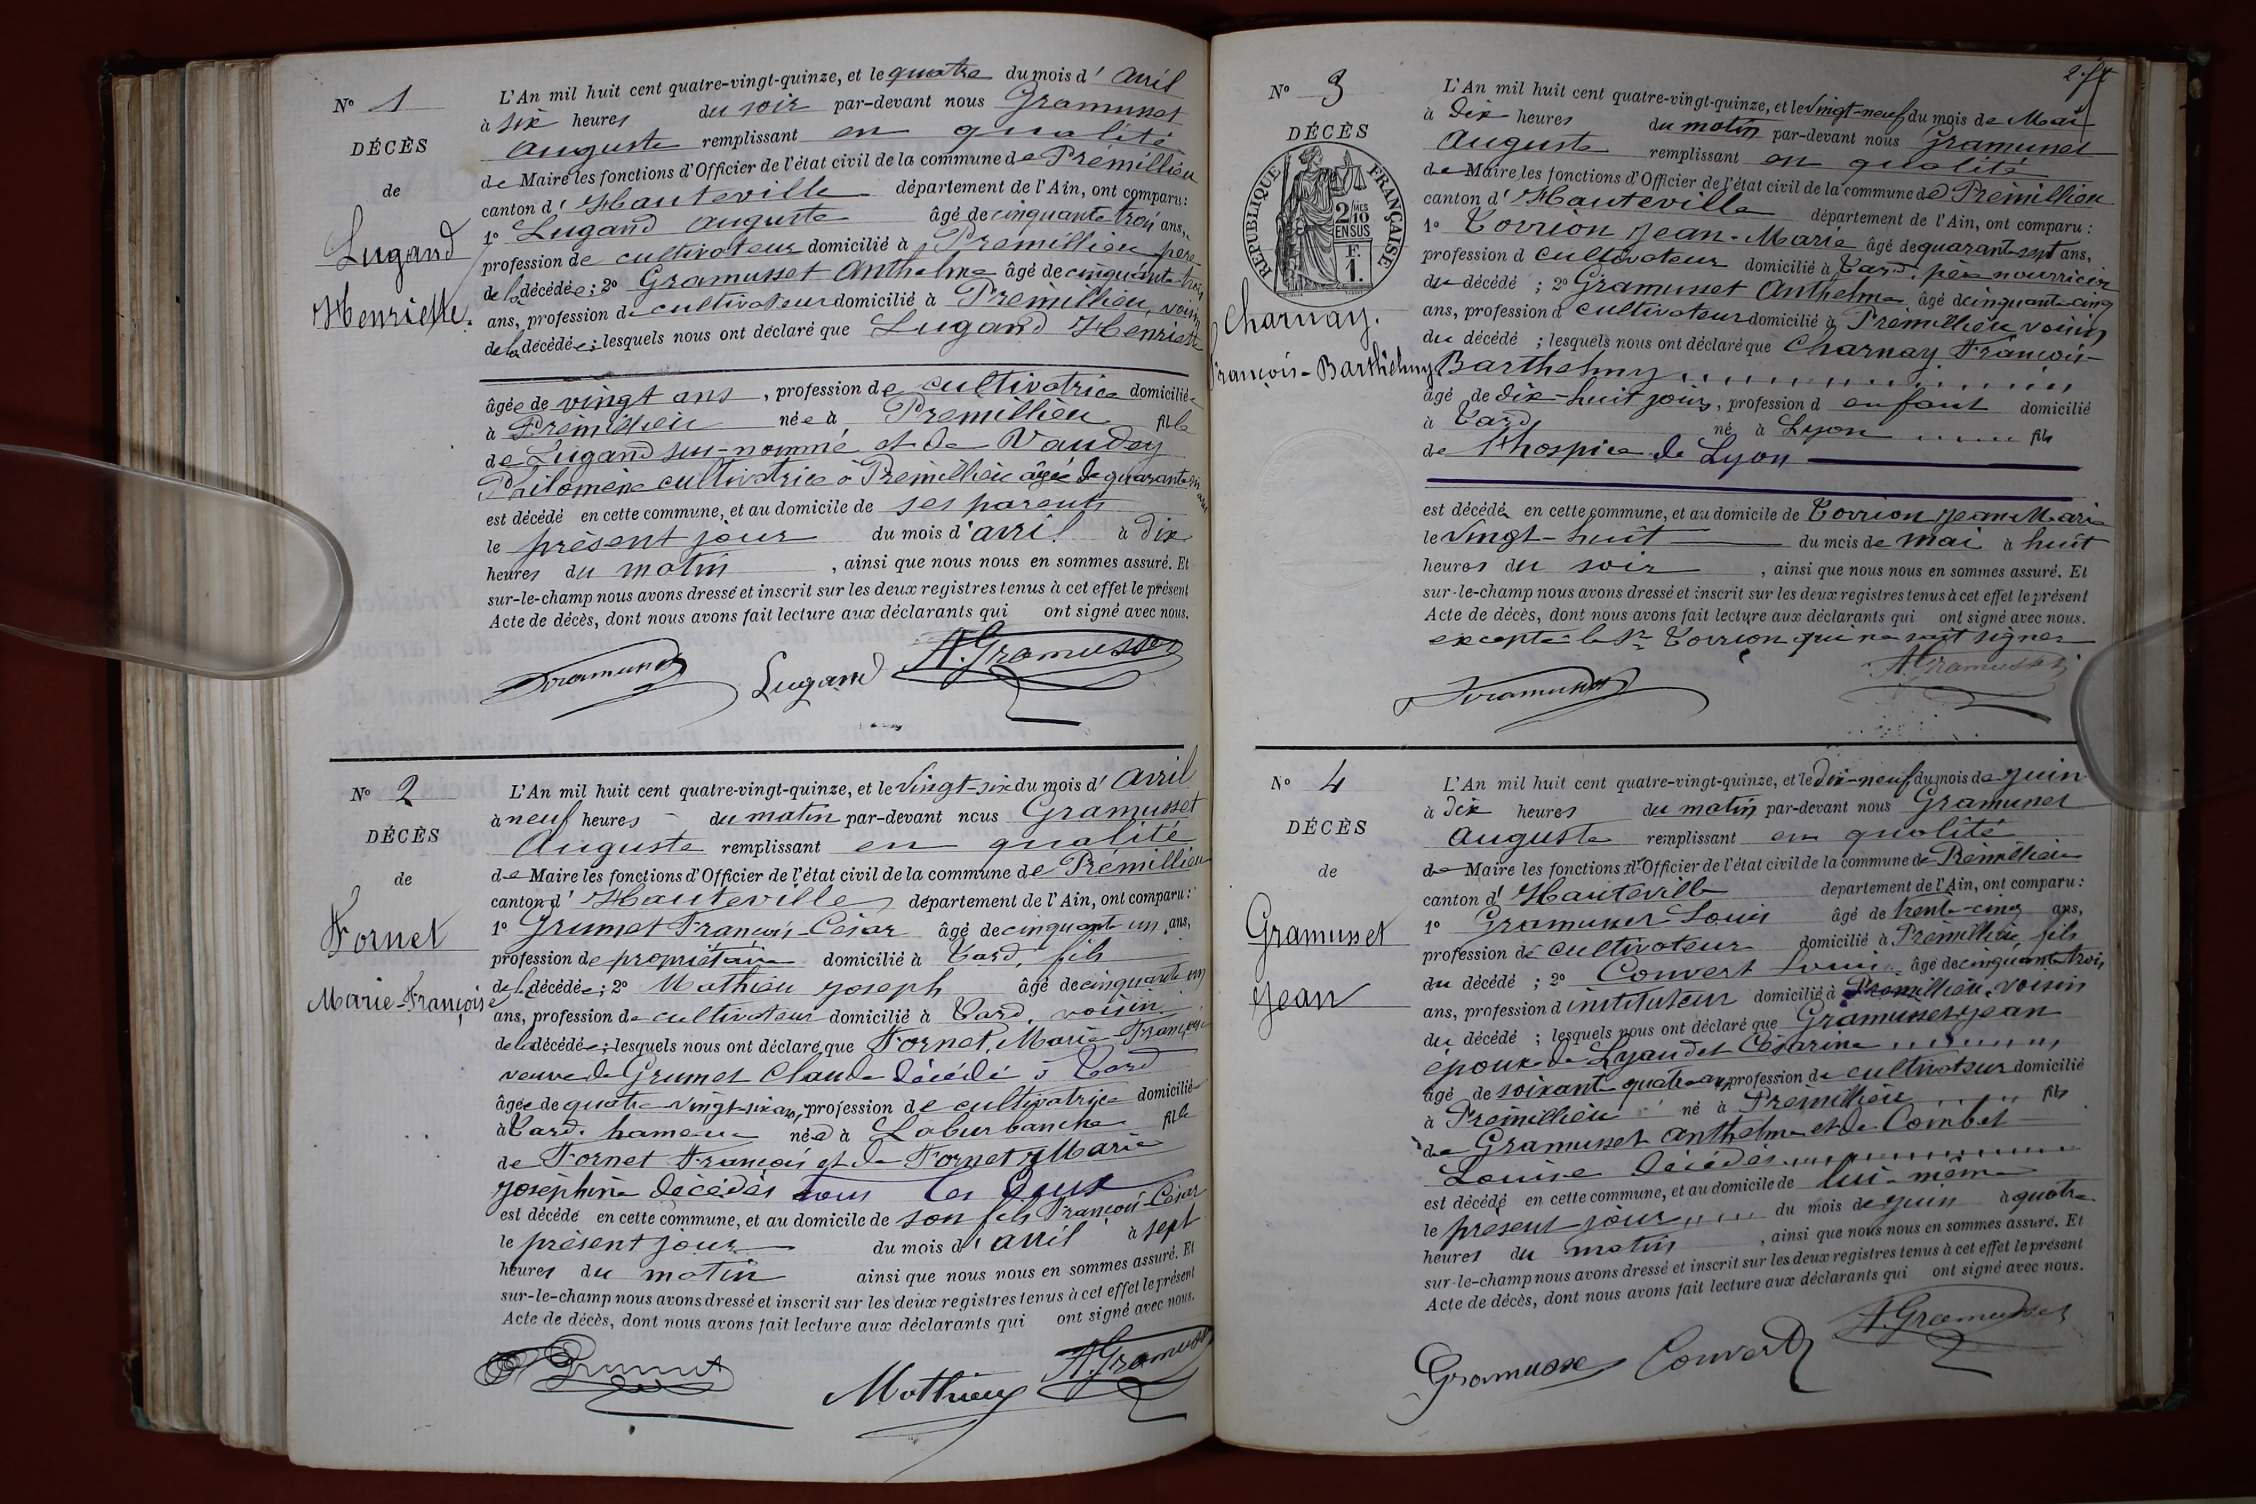 N° 1
DÉCÈS
de
Lugand
Henriette.
L'An mil huit cent quatre-vingt-quinze, et le quatre du mois d'avril
à six heures du soir par-devant nous Gramusset
Auguste remplissant en qualité
de Maire les fonctions d'Officier de l'état civil de la commune de Prémillieu
canton d'Hauteville département de l'Ain, ont comparu:
1° Lugand Auguste âgé de cinquante trois ans,
profession de cultivateur domicilié à Premillieu, père
de la décédée; 2° Gramusset Anthelme âgé de cinquante trois
ans, profession de cultivateur domicilié à Prémillieu, voisin
de la décédée; lesquels nous ont déclaré que Lugand Henriette
âgée de vingt ans, profession de cultivatrice domiciliée
à Prémillieu née à Premillieu fille
de Lugand sus-nommé et de Vaudey
Philomène cultivatrice à Prémillieu âgée de quarante ans
est décédé en cette commune, et au domicile de ses parents
le présent jour du mois d'avril à dix
heures du matin, ainsi que nous nous en sommes assuré. Et
sur-le-champ nous avons dressé et inscrit sur les deux registres tenus à cet effet le présent
Acte de décès, dont nous avons fait lecture aux déclarants qui ont signé avec nous.
Gramusset Lugand A. Gramusset
N° 2
DÉCÈS
de
Fornet
Marie-Françoise
L'An mil huit cent quatre-vingt-quinze, et le vingt-six du mois d'avril
à neuf heures du matin par-devant nous Gramusset
Auguste remplissant en qualité
de Maire les fonctions d'Officier de l'état civil de la commune de Prémillieu
canton d'Hauteville département de l'Ain, ont comparu:
1° Grumet François-César âgé de cinquante un ans,
profession de propriétaire domicilié à Tard, fils
de la décédée; 2° Mathieu Joseph âgé de cinquante un
ans, profession de cultivateur domicilié à Tard, voisin
de la décédée; lesquels nous ont déclaré que Fornet Marie-Françoise
veuve de Grumet Claude décédé à Tard
âgée de quatre-vingt-six ans, profession de cultivatrice domiciliée
à Tard, hameau née à Laburbanche fille
de Fornet François et de Fornet Marie
Joséphine décédés tous les deux
est décédé en cette commune, et au domicile de son fils François-César
le présent jour du mois d'avril à sept
heures du matin ainsi que nous nous en sommes assuré. Et
sur-le-champ nous avons dressé et inscrit sur les deux registres tenus à cet effet le présent
Acte de décès, dont nous avons fait lecture aux déclarants qui ont signé avec nous.
Grumet Mathieu A. Gramusset
N° 3
DÉCÈS
RÉPUBLIQUE FRANÇAISE
2/10 MES
EN SUS
F.
1.
Charnay.
François-Barthélmy
L'An mil huit cent quatre-vingt-quinze, et le vingt-neuf du mois de Mai
à dix heures du matin par-devant nous Gramusset
Auguste remplissant en qualité
de Maire les fonctions d'Officier de l'état civil de la commune de Prémillieu
canton d'Hauteville département de l'Ain, ont comparu:
1° Torrion Jean-Marie âgé de quarante sept ans,
profession d cultivateur domicilié à Tard, père nourricier
du décédé; 2° Gramusset Anthelme âgé de cinquante cinq
ans, profession d cultivateur domicilié à Prémillieu voisin
du décédé; lesquels nous ont déclaré que Charnay François-
Barthelmy
âgé de dix-huit jours, profession d enfant domicilié
à Tard né à Lyon fils
de l'hospice de Lyon
est décédé en cette commune, et au domicile de Torrion Jean-Marie
le vingt-huit du mois de mai à huit
heures du soir, ainsi que nous nous en sommes assuré. Et
sur-le-champ nous avons dressé et inscrit sur les deux registres tenus à cet effet le présent
Acte de décès, dont nous avons fait lecture aux déclarants qui ont signé avec nous.
excepté le Sr Torrion qui ne sait signer
Gramusset A. Gramusset
N° 4
DÉCÈS
de
Gramusset
Jean
L'An mil huit cent quatre-vingt-quinze, et le dix-neuf du mois de Juin
à dix heures du matin par-devant nous Gramusset
Auguste remplissant en qualité
de Maire les fonctions d'Officier de l'état civil de la commune de Prémillieu
canton d'Hauteville département de l'Ain, ont comparu:
1° Gramusset Louis âgé de trente-cinq ans,
profession de cultivateur domicilié à Prémillieu, fils
du décédé; 2° Convert Louis âgé de cinquante trois
ans, profession d instituteur domicilié à Prémillieu, voisin
du décédé; lesquels nous ont déclaré que Gramusset Jean
époux de Lyaudet Césarine
âgé de soixante quatre ans, profession de cultivateur domicilié
à Prémillieu né à Prémillieu fils
de Gramusset Anthelme et de Combet
Louise décédés
est décédé en cette commune, et au domicile de lui-même
le présent jour du mois de Juin à quatre
heures du matin, ainsi que nous nous en sommes assuré. Et
sur-le-champ nous avons dressé et inscrit sur les deux registres tenus à cet effet le présent
Acte de décès, dont nous avons fait lecture aux déclarants qui ont signé avec nous.
Gramusset Convert A. Gramusset